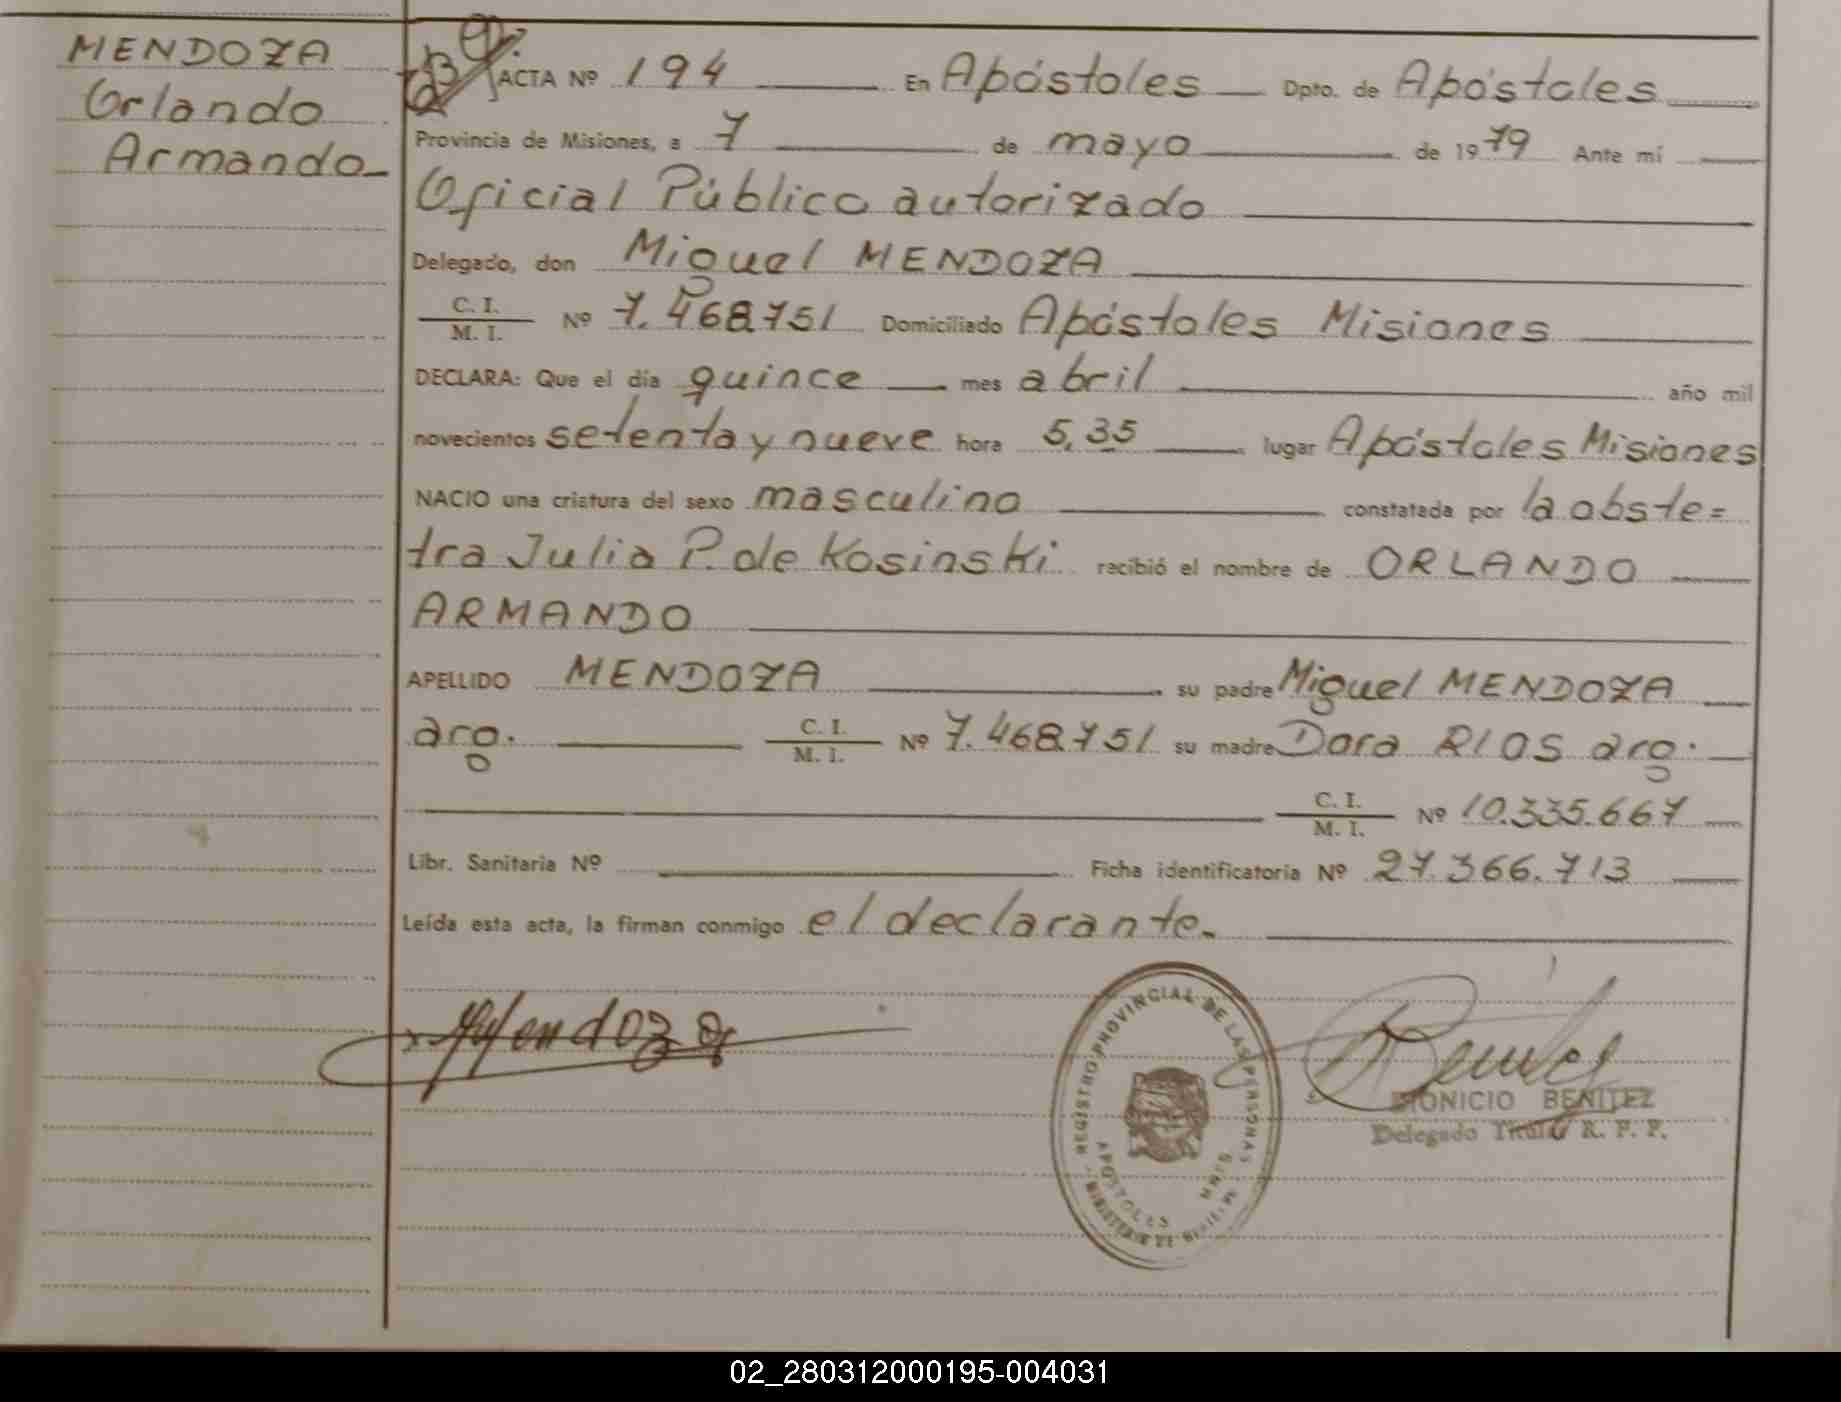 MENDOZA
Orlando
Armando
ACTA Nº 194 En Apóstoles Dpto. de Apóstoles
Provincia de Misiones, a 7 de mayo de 1979 Ante mí
Oficial Público autorizado
Delegado, don Miguel MENDOZA
C. I.
M. I. Nº 7.468.751 Domiciliado Apóstoles Misiones
DECLARA: Que el día quince mes abril año mil
novecientos setenta y nueve hora 5,35 lugar Apóstoles Misiones
NACIO una criatura del sexo masculino constatada por la obste=
tra Julia P. de Kosinski recibió el nombre de ORLANDO
ARMANDO
APELLIDO MENDOZA su padre Miguel MENDOZA
arg. C. I.
M. I. Nº 7.468.751 su madre Dora RIOS arg.
C. I.
M. I. Nº 10.335.667
Libr. Sanitaria Nº Ficha identificatoria Nº 27.366.713
Leída esta acta, la firman conmigo el declarante.
Mendoza
REGISTRO PROVINCIAL DE LAS PERSONAS
APOSTOLES
DIONICIO BENITEZ
Delegado Titular R. P. P.
02_280312000195-004031